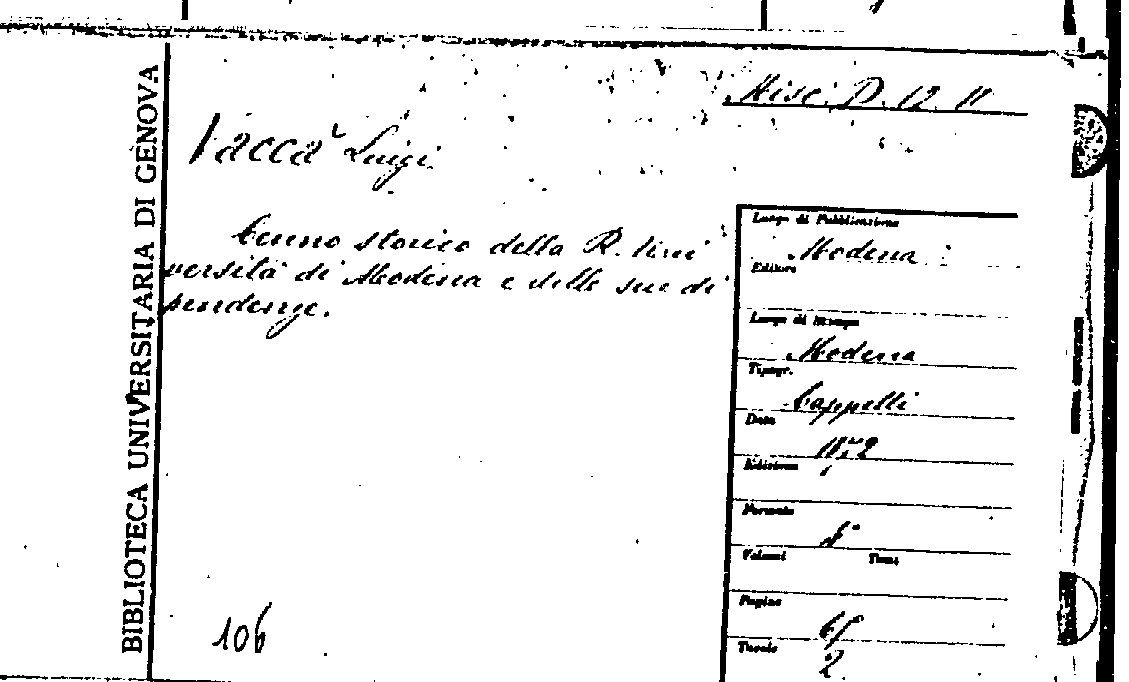 BIBLIOTECA UNIVERSITARIA DI GENOVA
Misc. D. 12. 11
Vaccà Luigi
Cenno storico della R. Uni
versità di Modena e delle sue di
pendenze.
Luogo di Pubblicazione
Modena
Editore
Luogo di Stampa
Modena
Tipogr.
Cappelli
Data
Edizione
Formato
8°
Volumi Tomi
Pagine
Tavole
2
106